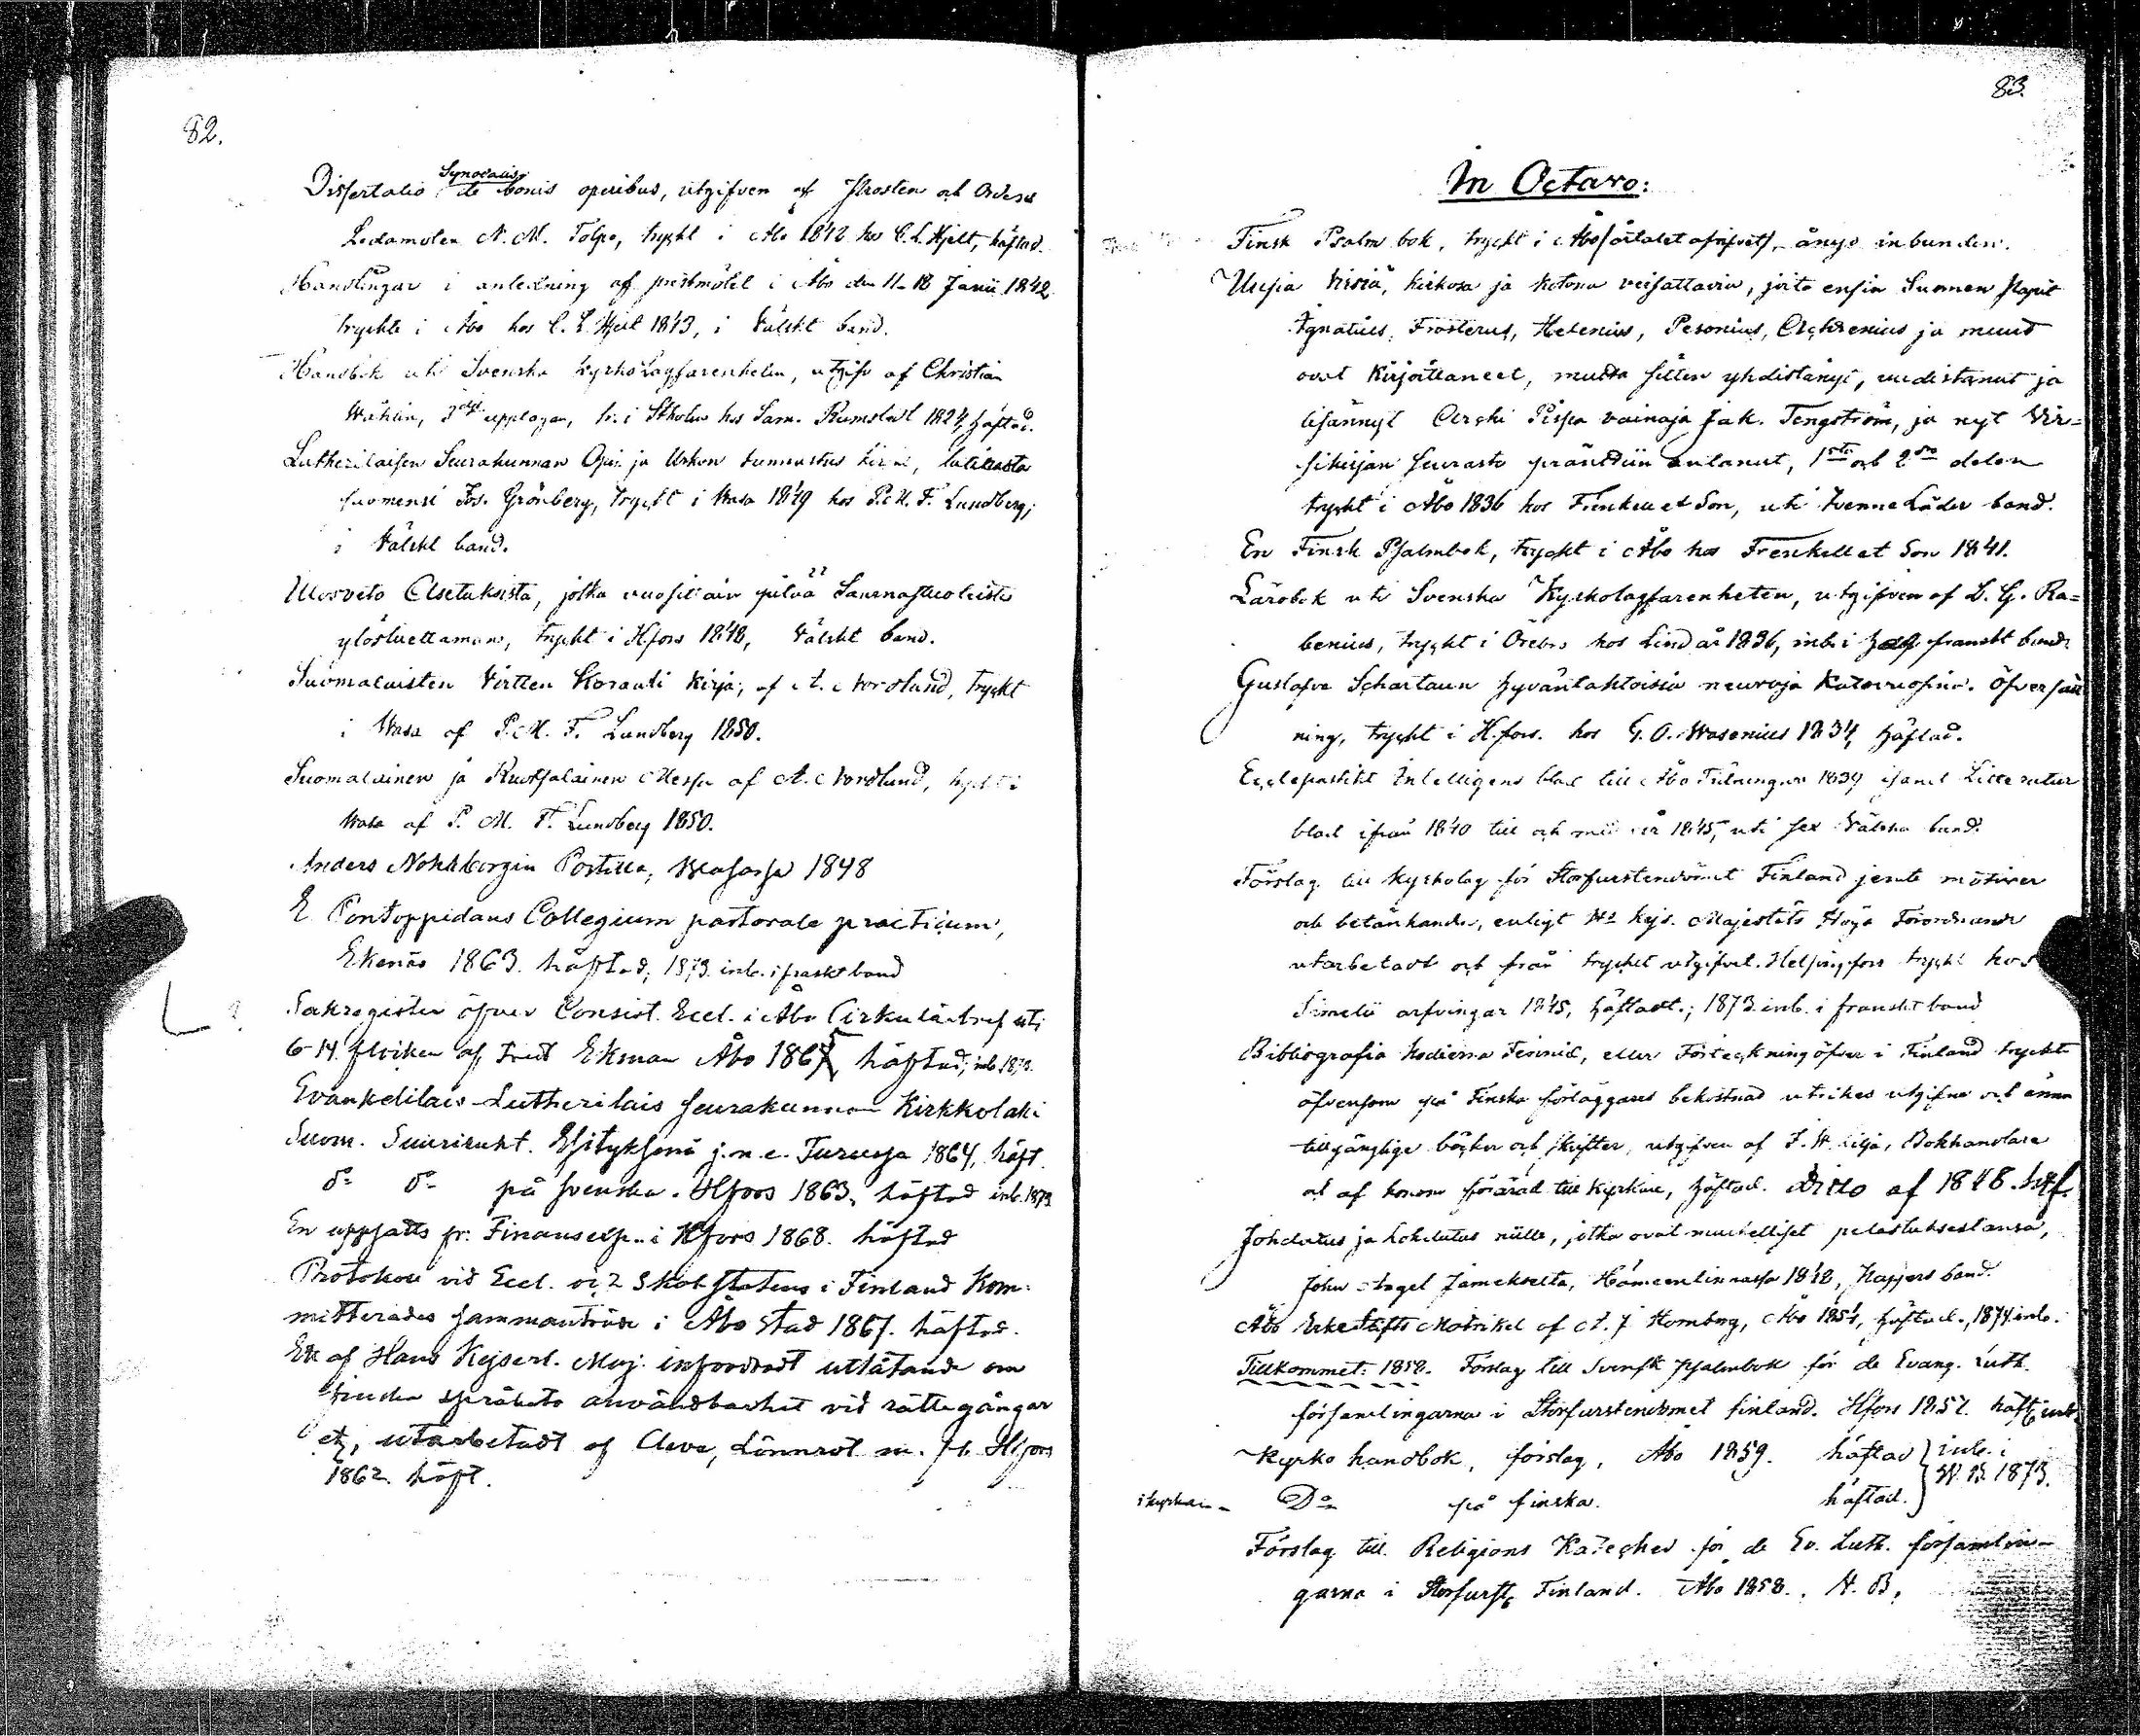 82.
Synodalis
Dissertatio de bonis operibus, utgifven af Prosten och Ordens
Ledamoten N. M. Tolpo, tryckt i Åbo 1842 hos C. L. Hjelt, häftad.
Handlingar i anledning af prestmötet i Åbo den 11-18 Junii 1842
tryckte i Åbo hos C. L. Hjelt 1843, i Välskt band.
Handbok uti Svenska Kyrko Lagfarenheten, utgifv af Christian
Wåhlin, 3dje upplagan, tr. i Stholm hos Sam. Rumstedt 1824, häftad.
Lutherilaisen Seurakunnan Opin ja Uskon tunnustus kirja, latinasta
suomensi Jos. Grönberg, tryckt i Wasa 1849 hos P. M. F. Lundberg,
i Välskt band.
Ulosveto Asetuksista, jotka vuosittain pitää Saarnastuolista
ylösluettaman, tryckt i Hfors 1848, Välskt band.
Suomalaisten Virtten Koraali Kirja, af A. Nordlund, tryckt
i Wasa af P. M. F. Lundberg 1850.
Suomalainen ja Ruotsalainen Messu af A. Nordlund, tryckt i
Wasa af P. M. F. Lundberg 1850.
Anders Nohrborgin Postilla, Waasassa 1848
E. Pontoppidans Collegium pastorale practicum,
Ekenäs 1863. häftad, 1873. inb. i franskt band
Sakregister öfver Consist. Eccl. i Åbo Cirkulärbref uti
6-14. flocken af Fred. Ekman Åbo 1865 häftad, inb. 1873.
Evankelilais-Lutherilais seurakunnan Kirkkolaki
Suom. Suuriruht. Esityksenä j.n.e. Turussa 1864, häft.
do do på svenska. Hfors 1863, häftad inb. 1873
En uppsats fr. Finansexp. i Hfors 1868. häftad
Protokoll vid Eccl. och Skolstatens i Finland Kom-
mitterades sammanträde i Åbo stad 1867. häftad.
Ett af Hans Kejserl. Maj: infordradt utlåtande om
finska språkets användbarhet vid rättegångar
etc, utarbetadt af Cleve, Lönnrot m. fl. Hfors
1862. häft.
83.
In Octavo:
Finsk Psalmbok, tryckt i Åbo (årtalet afrifvit), ånyo inbunden.
Uusia Virsiä, kirkosa ja kotona veisattavia, joita ensin Suomen Papit
Ignatius, Frosterus, Helenius, Pesonius, Achrenius ja muut
ovat kirjoittaneet, mutta sitten yhdistänyt, uudistanut ja
lisännyt Arcki Pispa vainaja Jak. Tengström, ja nyt Vir-
sikirjan seurasta präntiin antanut, 1sta och 2dra delen
tryckt i Åbo 1836 hos Frenckell et Son, uti tvenne Läder band.
En Finsk Psalmbok, tryckt i Åbo hos Frenckell et Son 1841.
Lärobok uti Svenska Kyrkolagfarenheten, utgifven af L. G. Ra-
benius, tryckt i Örebro hos Lindh år 1836, inb. i half franskt band.
Gustafva Schartaun hyväntahtoisia neuvoja Katovaisina. Öfversätt
ning, tryckt i H.fors. hos G. O. Wasenius 1834, häftad.
Ecclesiastikt Intelligens blad till Åbo Tidningar 1839 jemt Litteratur
blad ifrån 1840 till och med år 1845, uti sex Välska band.
Förslag till Kyrkolag för Storfurstendömet Finland jemte motiver
och betänkande, enligt Hs Kejs. Majestäts Höga Förordnande
utarbetadt och från trycket utgifvet. Helsingfors tryckt hos
Simelii arfvingar 1845, häftadt.; 1873. inb. i franskt band
Bibliografia hodierna Fennica, eller Förteckning öfver i Finland tryckta
äfvensom på Finska förläggares bekostnad utrikes utgifna och ännu
tillgänglige böcker och skrifter, utgifven af J. W. Lilja, Bokhandlare
och af honom förärad till Kyrkan, häftad. ditto af 1848. häf.
Johdatus ja hohdutus niille, jotka ovat murheelliset pelastuksestansa,
John Angel Jamekselta, Hämeenlinnassa 1848, Pappers band.
Åbo Erkestifts Matrikel af A. J. Hornborg, Åbo 1851, häftad., 1874 inb.
Tillkommet: 1858. Förslag till Svensk psalmbok för de Evang. Luth.
församlingarna i Storfurstendömet Finland. Hfors 1857. häft. inb.
Kyrko handbok, förslag, Åbo 1859. häftad } inb. i
W. B. 1873.
i kyrkan - Do på finska. häftad.
Förslag till Religions Kateches för de Ev. Luth. församlin-
garna i Storfurst. Finland. Åbo 1858. H. B.